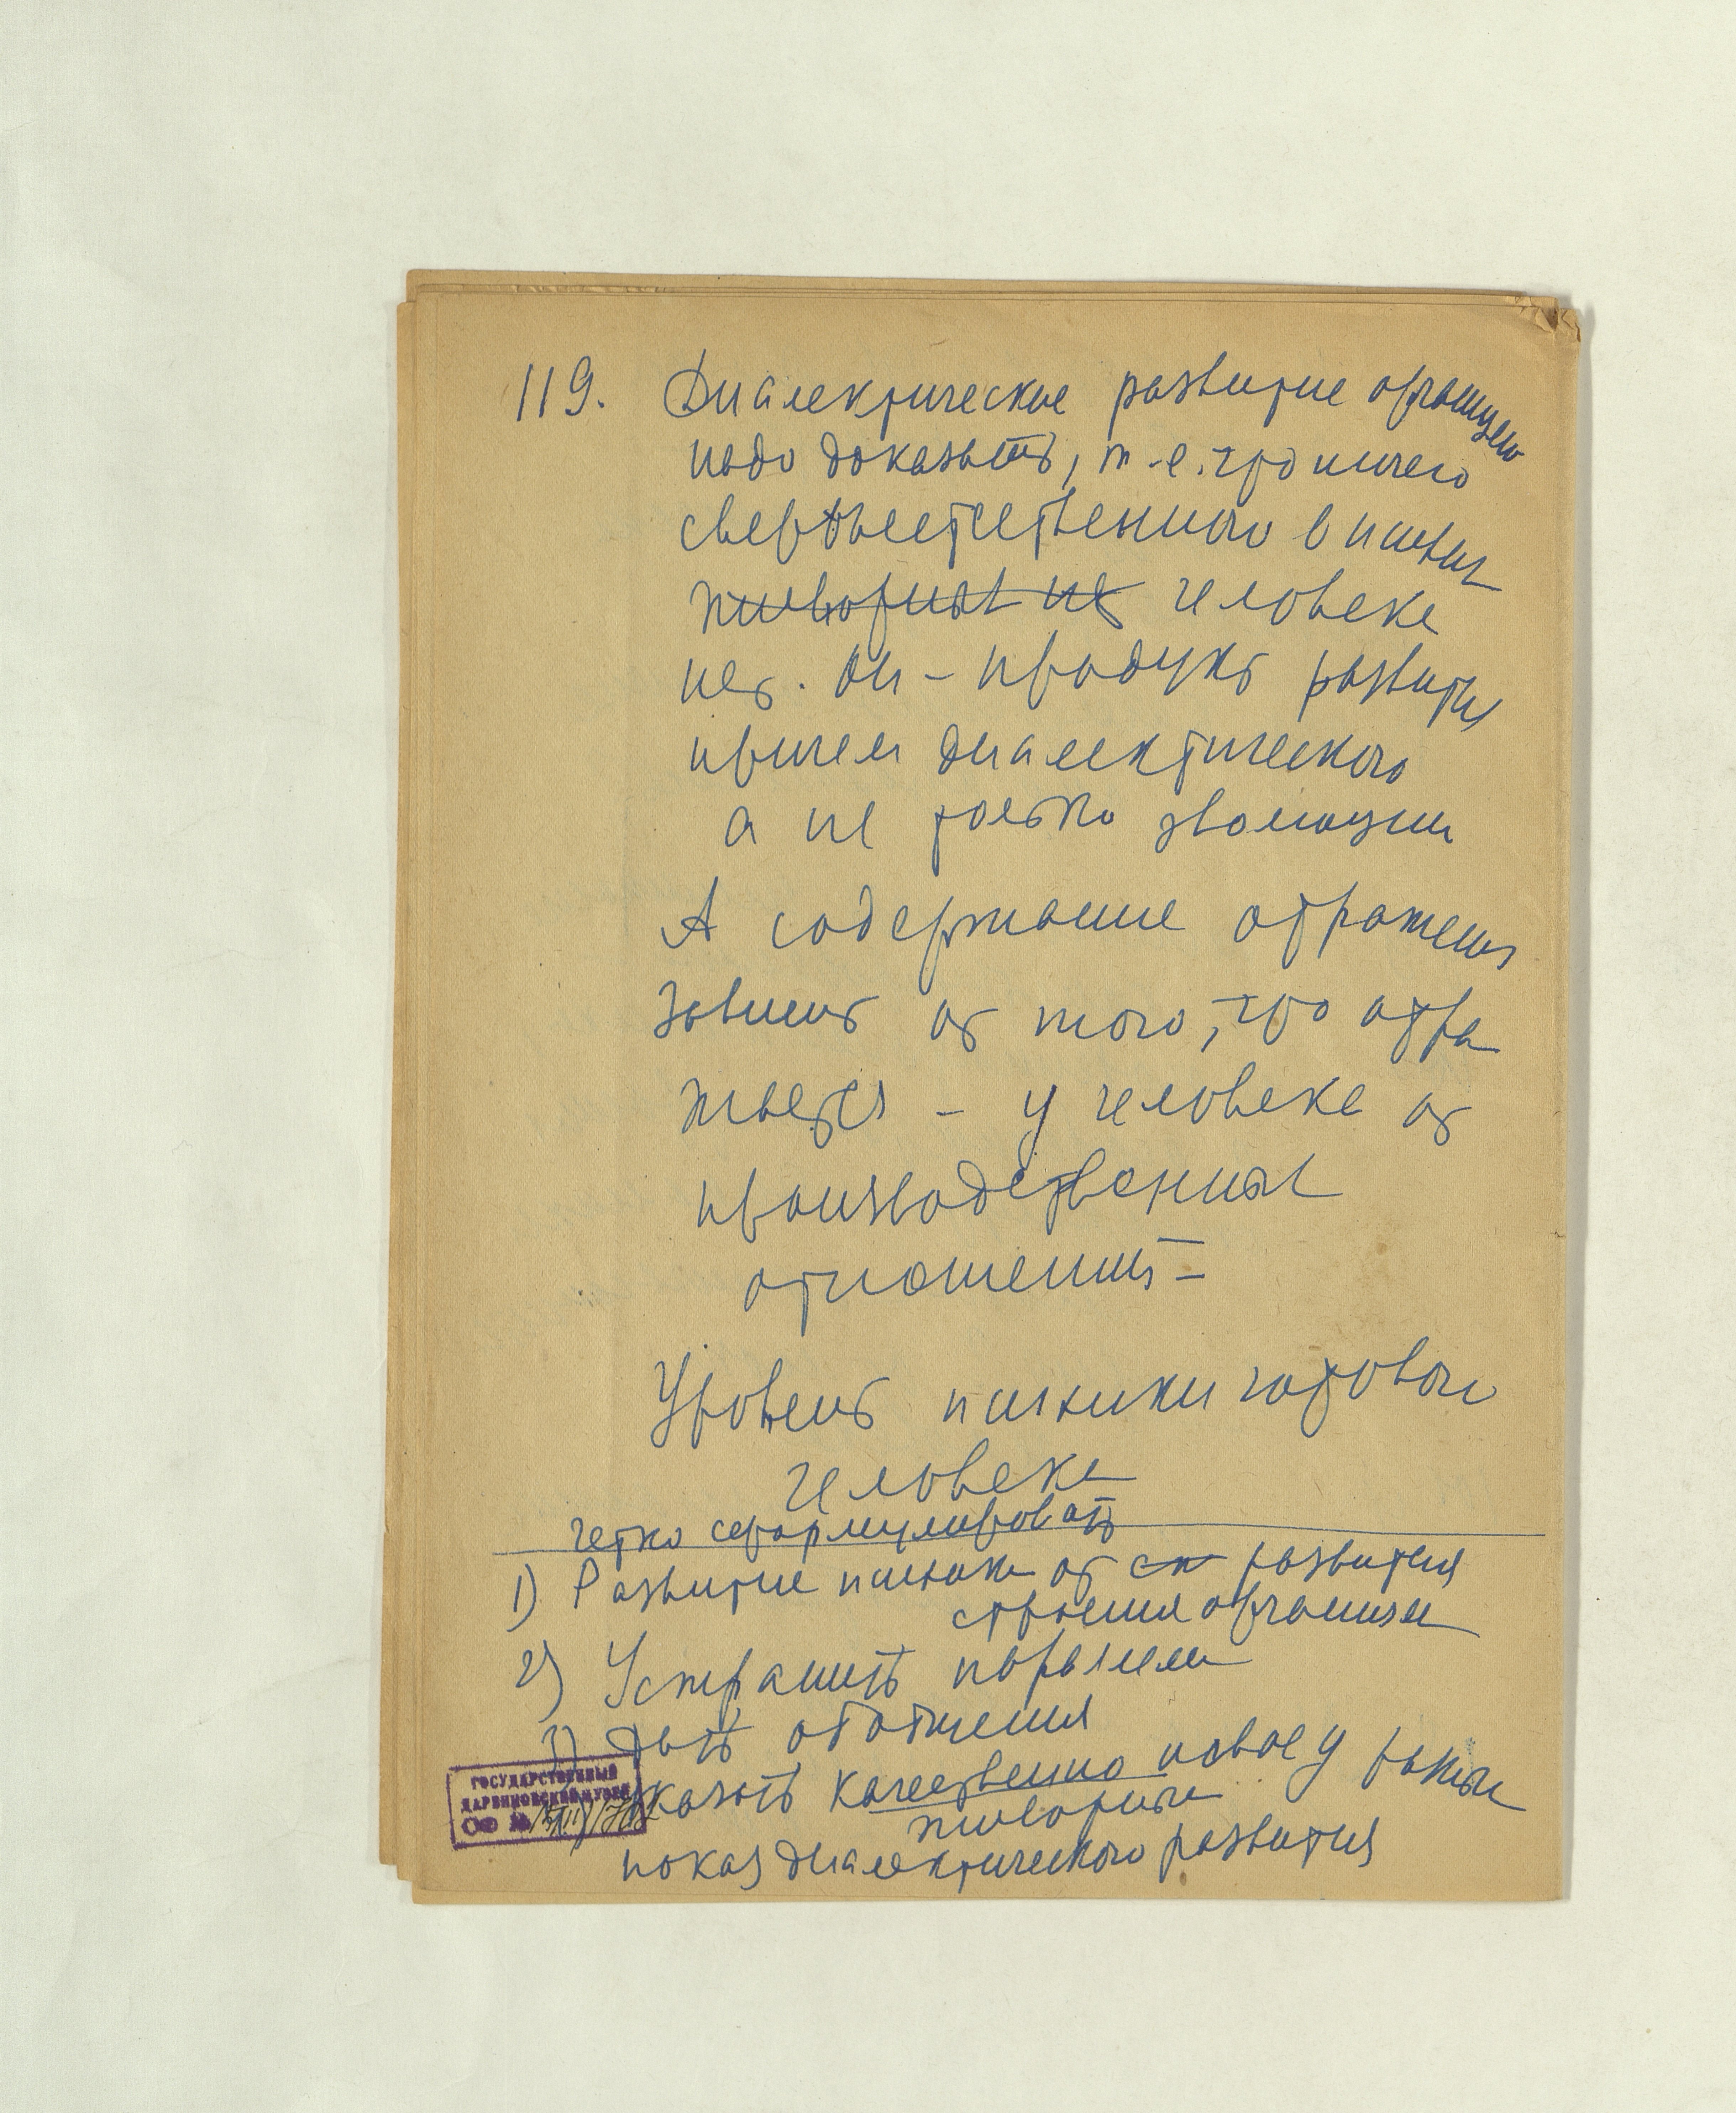 119. Диалектическое развитие организмо
надо доказать, т.е. что ничего
сверхъестественного в психи
животных не человеке
нет. Он – продукт развития
причем диалектического
а не только эволюции
А содержание отражения
зависит от того, что отра
жается – у человека от
производственных
отношений –
Уровень психики готовой
человека
четко сформулировать
1) Развитие психики от развития
строения организма
2) Устранить параллели
3) Дать обобщения
указать качественно новое у разных
животных
показ диалектического развития
ГОСУДАРСТВЕННЫЙ
ДАРВИНОВСКИЙ МУЗЕЙ
ОФ №